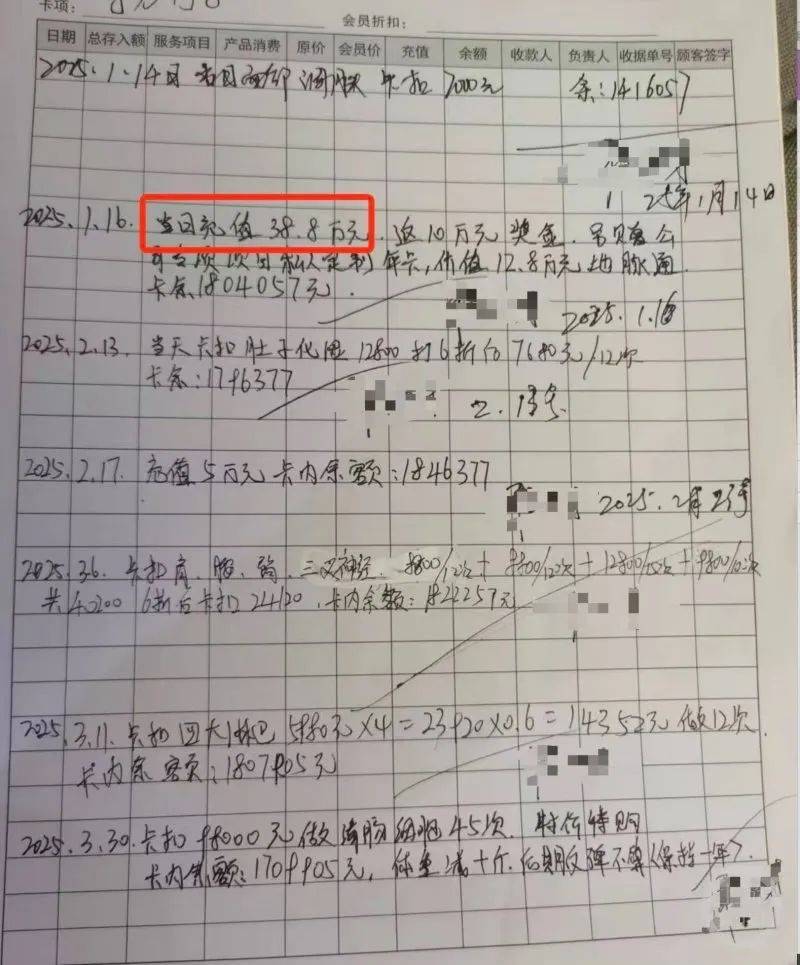 卡项:
会员折扣:
日期 总存入额 服务项目 产品消费 原价 会员价 充值 余额 收款人 负责人 收据单号 顾客签字
2025.1.14日 卡扣 7000元 余:1416057
25年1月14日
2025.1.16. 当日充值 38.8万元. 返10万元 奖金.
专项项目私人定制年卡,价值12.8万元
卡余1804057元.
2025.1.16
2025.2.13. 当天卡扣肚子化湿 12800 打6折后 7680元/12次
卡余:1796377
2.13号
2025.2.17. 充值5万元 卡内余额:1846377
2025.2月
2025.3.6. 卡扣肩、三叉神经. 9800/12次+9800/12次+12800/次+9800/次
共40200 6折后卡扣24120.卡内余款:1822257元
2025.3.11.卡扣四大淋巴5980元×4=23920×0.6=14352元 做12次.
卡内余额:1807905元
2025.3.30.卡扣98000元做 45次. 特价特购
卡内余额:1709905元,体重减十斤.后期反弹不算(保持一年).